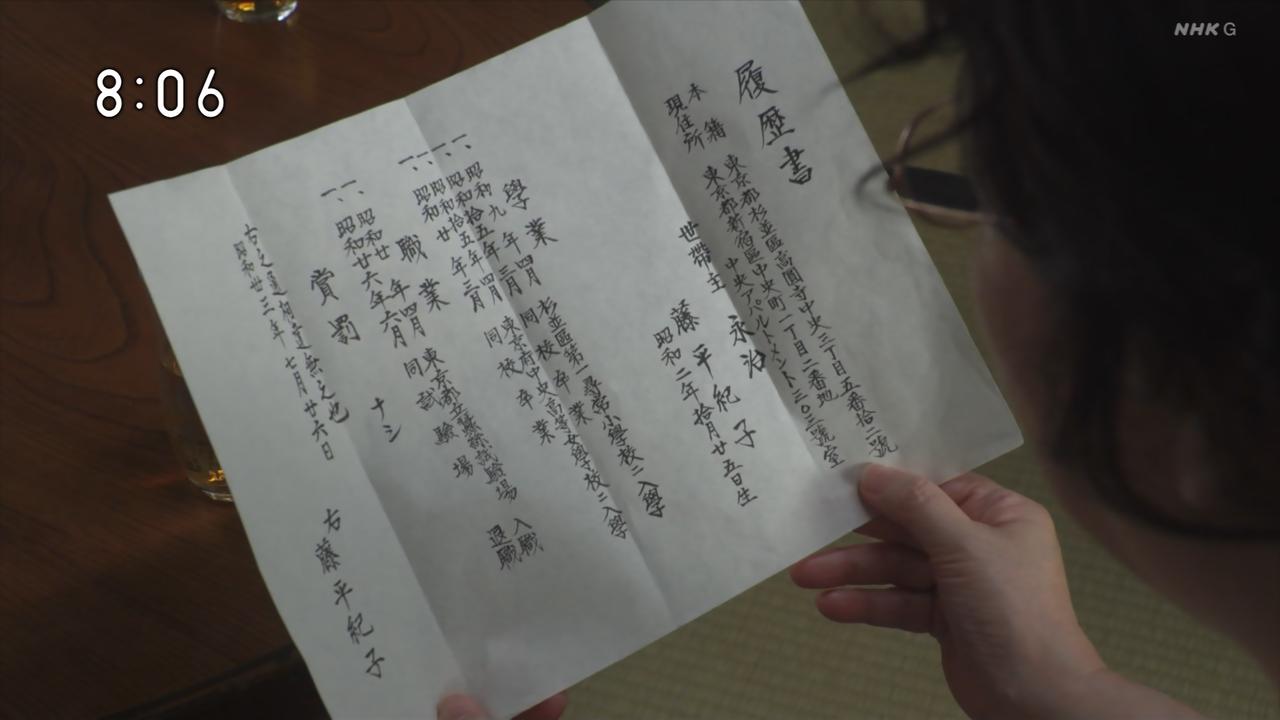 NHK G
8:06
履歴書
本籍 東京都杉並區高圓寺中央三丁目五番拾二號
現住所 東京都新宿區中央町一丁目二番地
中央アパルトメント二〇三號室
世帶主 永治
藤平紀子
昭和二年拾月廿五日生
學業
一、昭和九年四月 杉並區第一尋常小學校ニ入學
一、昭和拾五年三月 同校卒業
一、昭和拾五年四月 東京府中央高等女學校ニ入學
一、昭和廿年三月 同校卒業
職業
一、昭和廿年四月 東京都立蠶絲試驗場 入職
一、昭和廿六年六月 同試驗場 退職
賞罰
ナシ
右之通相違無之也
昭和廿三年七月廿六日
右 藤平紀子